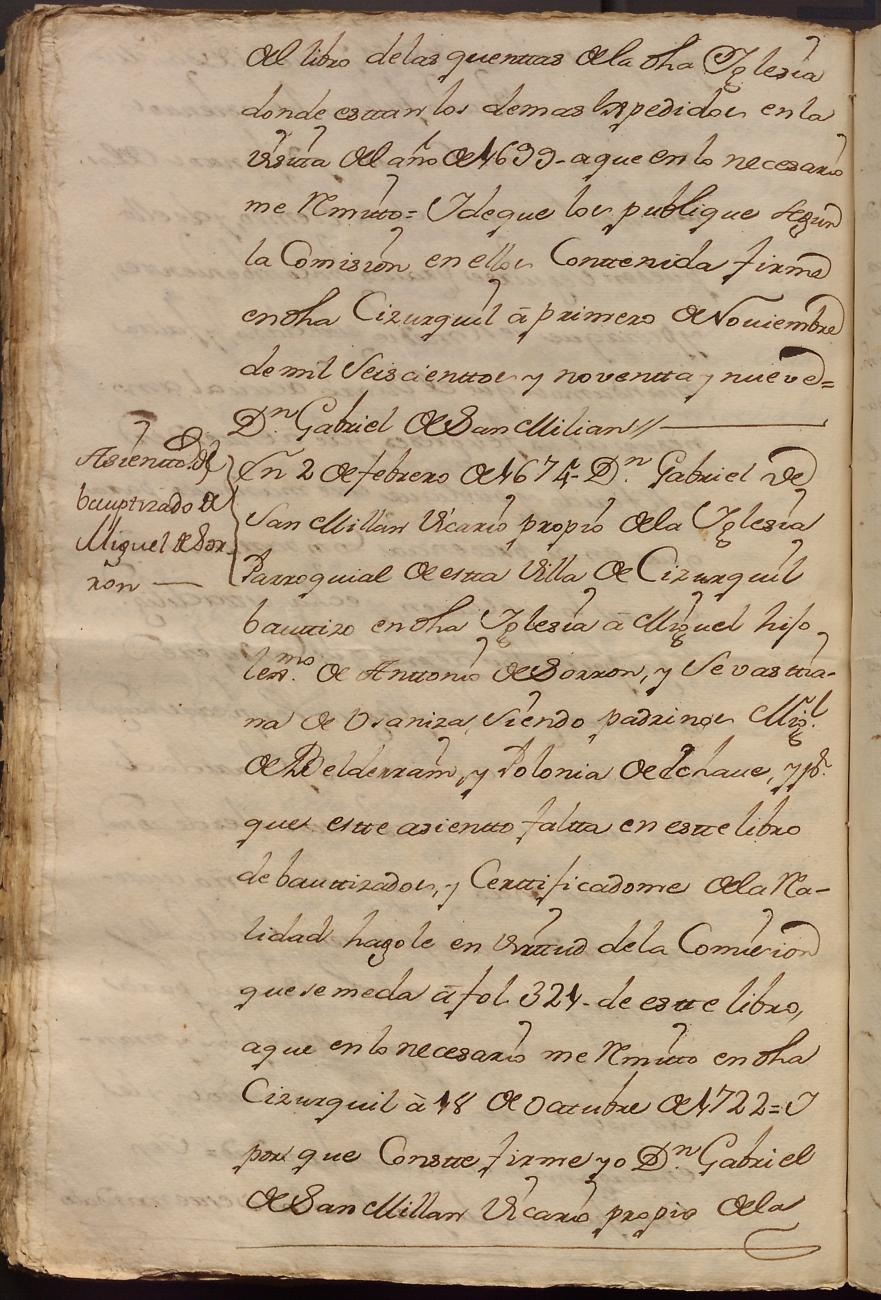 del libro delas quenttas dela dha Iglesia
donde esttan los demas Expedidos en la
Visitta del año de 1699 - aque en lo necesario
me Remitto = Ydeque los publique segun
la Comision en ellos Conttenida firme
en dha Cizurquil â primero de Noviembre
de mil Seiscienttos y noventta y nueve =
Dn. Gabriel de San Milian //
Asientto del
bauptizado de
Miguel de Sor
rõn
En 2 de febrero de 1675 - Dn. Gabriel de
San Millan Vicario propio dela Iglesia
Parroquial de estta Villa de Cizurquil
bauttizo en dha Iglesia â Miguel hijo
lexmo. de Anttonio de Sorron, y Sevasttia-
na de Vsaniza, Siendo padrinos Migl.
de Belderrain, y Polonia de Echaue, y pr.
que estte asientto faltta en estte libro
de bauttizados, y Certtificadome dela Rea-
lidad hagole en Virttud dela Comision
que se me da â fol. 321 - de estte libro,
aque en lo necesario me Remitto en dha
Cizurquil â 18 de Octubre de 1722 = Y
por que Constte firme yo Dn. Gabriel
de San Millan Vicario propio dela